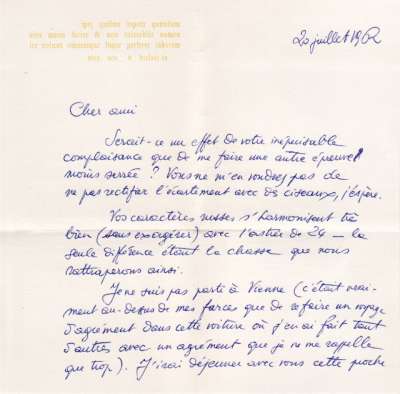 20 juillet 1962
Cher ami
Serait-ce un effet de votre inépuisable
complaisance que de me faire une autre épreuve
moins serrée ? Vous ne m'en voudrez pas de
ne pas rectifier l'écartement avec des ciseaux, j'espère.
Vos caractères russes s'harmonisent très
bien (sans exagérer) avec l'astrée de 24 — la
seule différence étant la chasse que nous
rattraperons ainsi.
Je ne suis pas parti à Vienne (c'était vrai-
ment au-dessus de mes forces que de refaire un voyage
d'agrément dans cette voiture où j'en ai fait tant
d'autres avec un agrément que je ne me rappelle
que trop). J'irai déjeuner avec vous cette proche